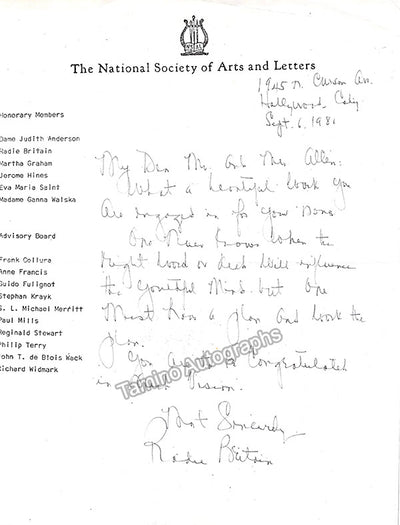 The National Society of Arts and Letters
1945 N. Curson Av.
Hollywood, Calif
Sept. 6, 1980
Honorary Members
Dame Judith Anderson
Radie Britain
Martha Graham
Jerome Hines
Eva Maria Saint
Madame Ganna Walska
Advisory Board
Frank Collura
Anne Francis
Guido Fulignot
Stephan Krayk
S. L. Michael Merritt
Paul Mills
Reginald Stewart
Philip Terry
John T. de Blois Wack
Richard Widmark
My Dear Mr. and Mrs. Allen:
What a beautiful work you
are engaged in for your
One never knows when the
right word or deed will influence
the youthful mind but one
must have a plan and work the
plan.
You are to be congratulated
in your vision.
Most Sincerely
Radie Britain
Tamino Autographs